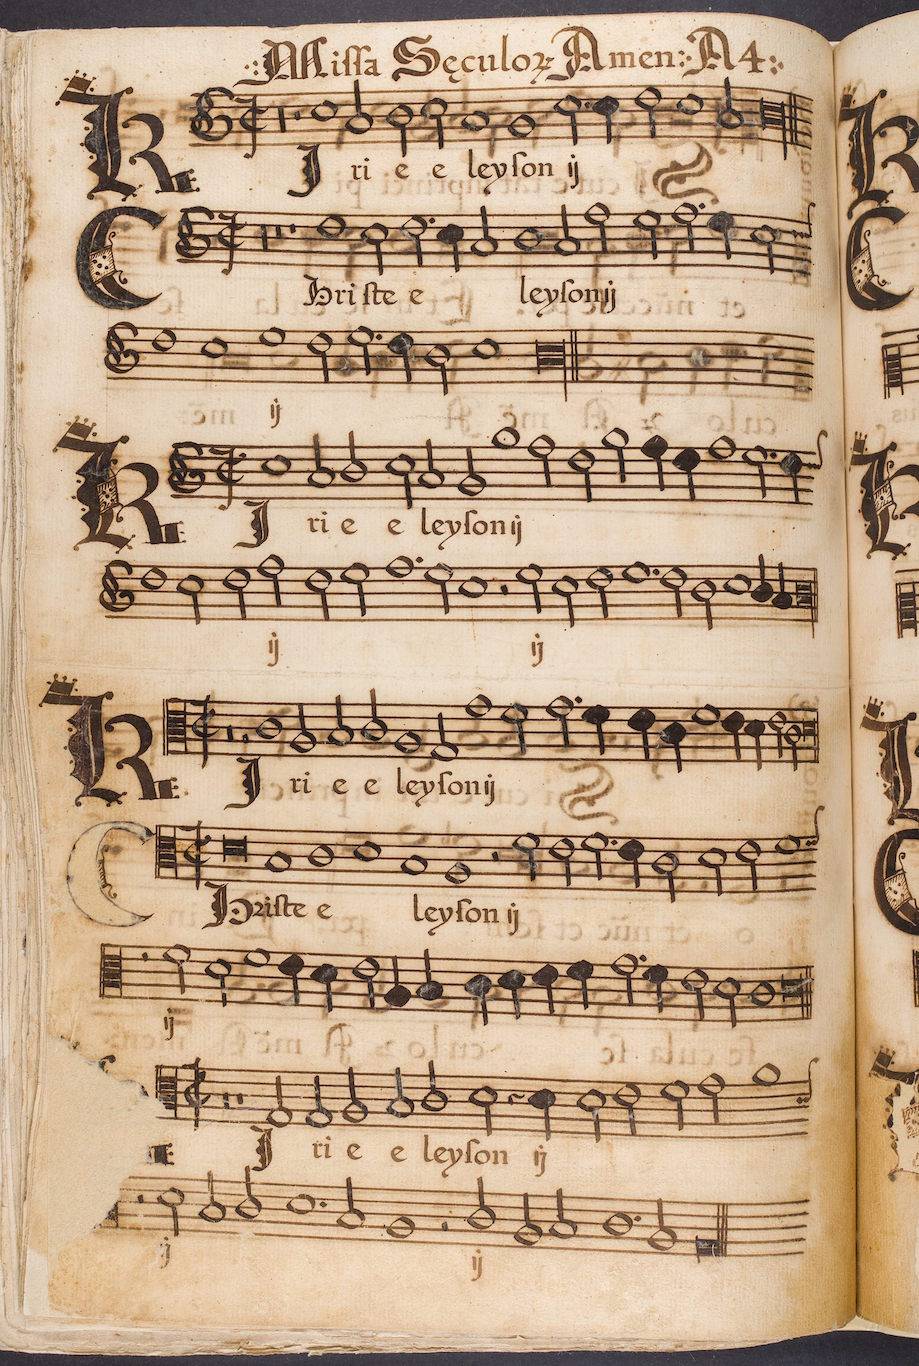 Missa Sęculoꝝ Amen: A4:
KJ ri e e leyson ij
Christe e leyson ij
ij
KJ ri e e leyson ij
ij ij
KJ ri e e leyson ij
Christe e leyson ij
ij
J ri e e leyson ij
ij ij